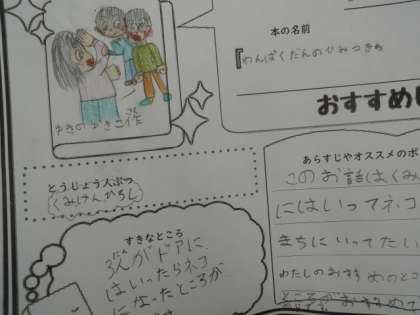 本の名前
『わんぱくだんのひみつきち
おすすめ
ゆきのゆみこ作
さん
とうじょう人ぶつ
くみけんひろし
すきなところ
3人がドアに
はいったらネコ
になったところが
あらすじやオススメのポ
このお話はくみ
にはいってネコ
まちにいってたい
わたしのおすすめのとこ